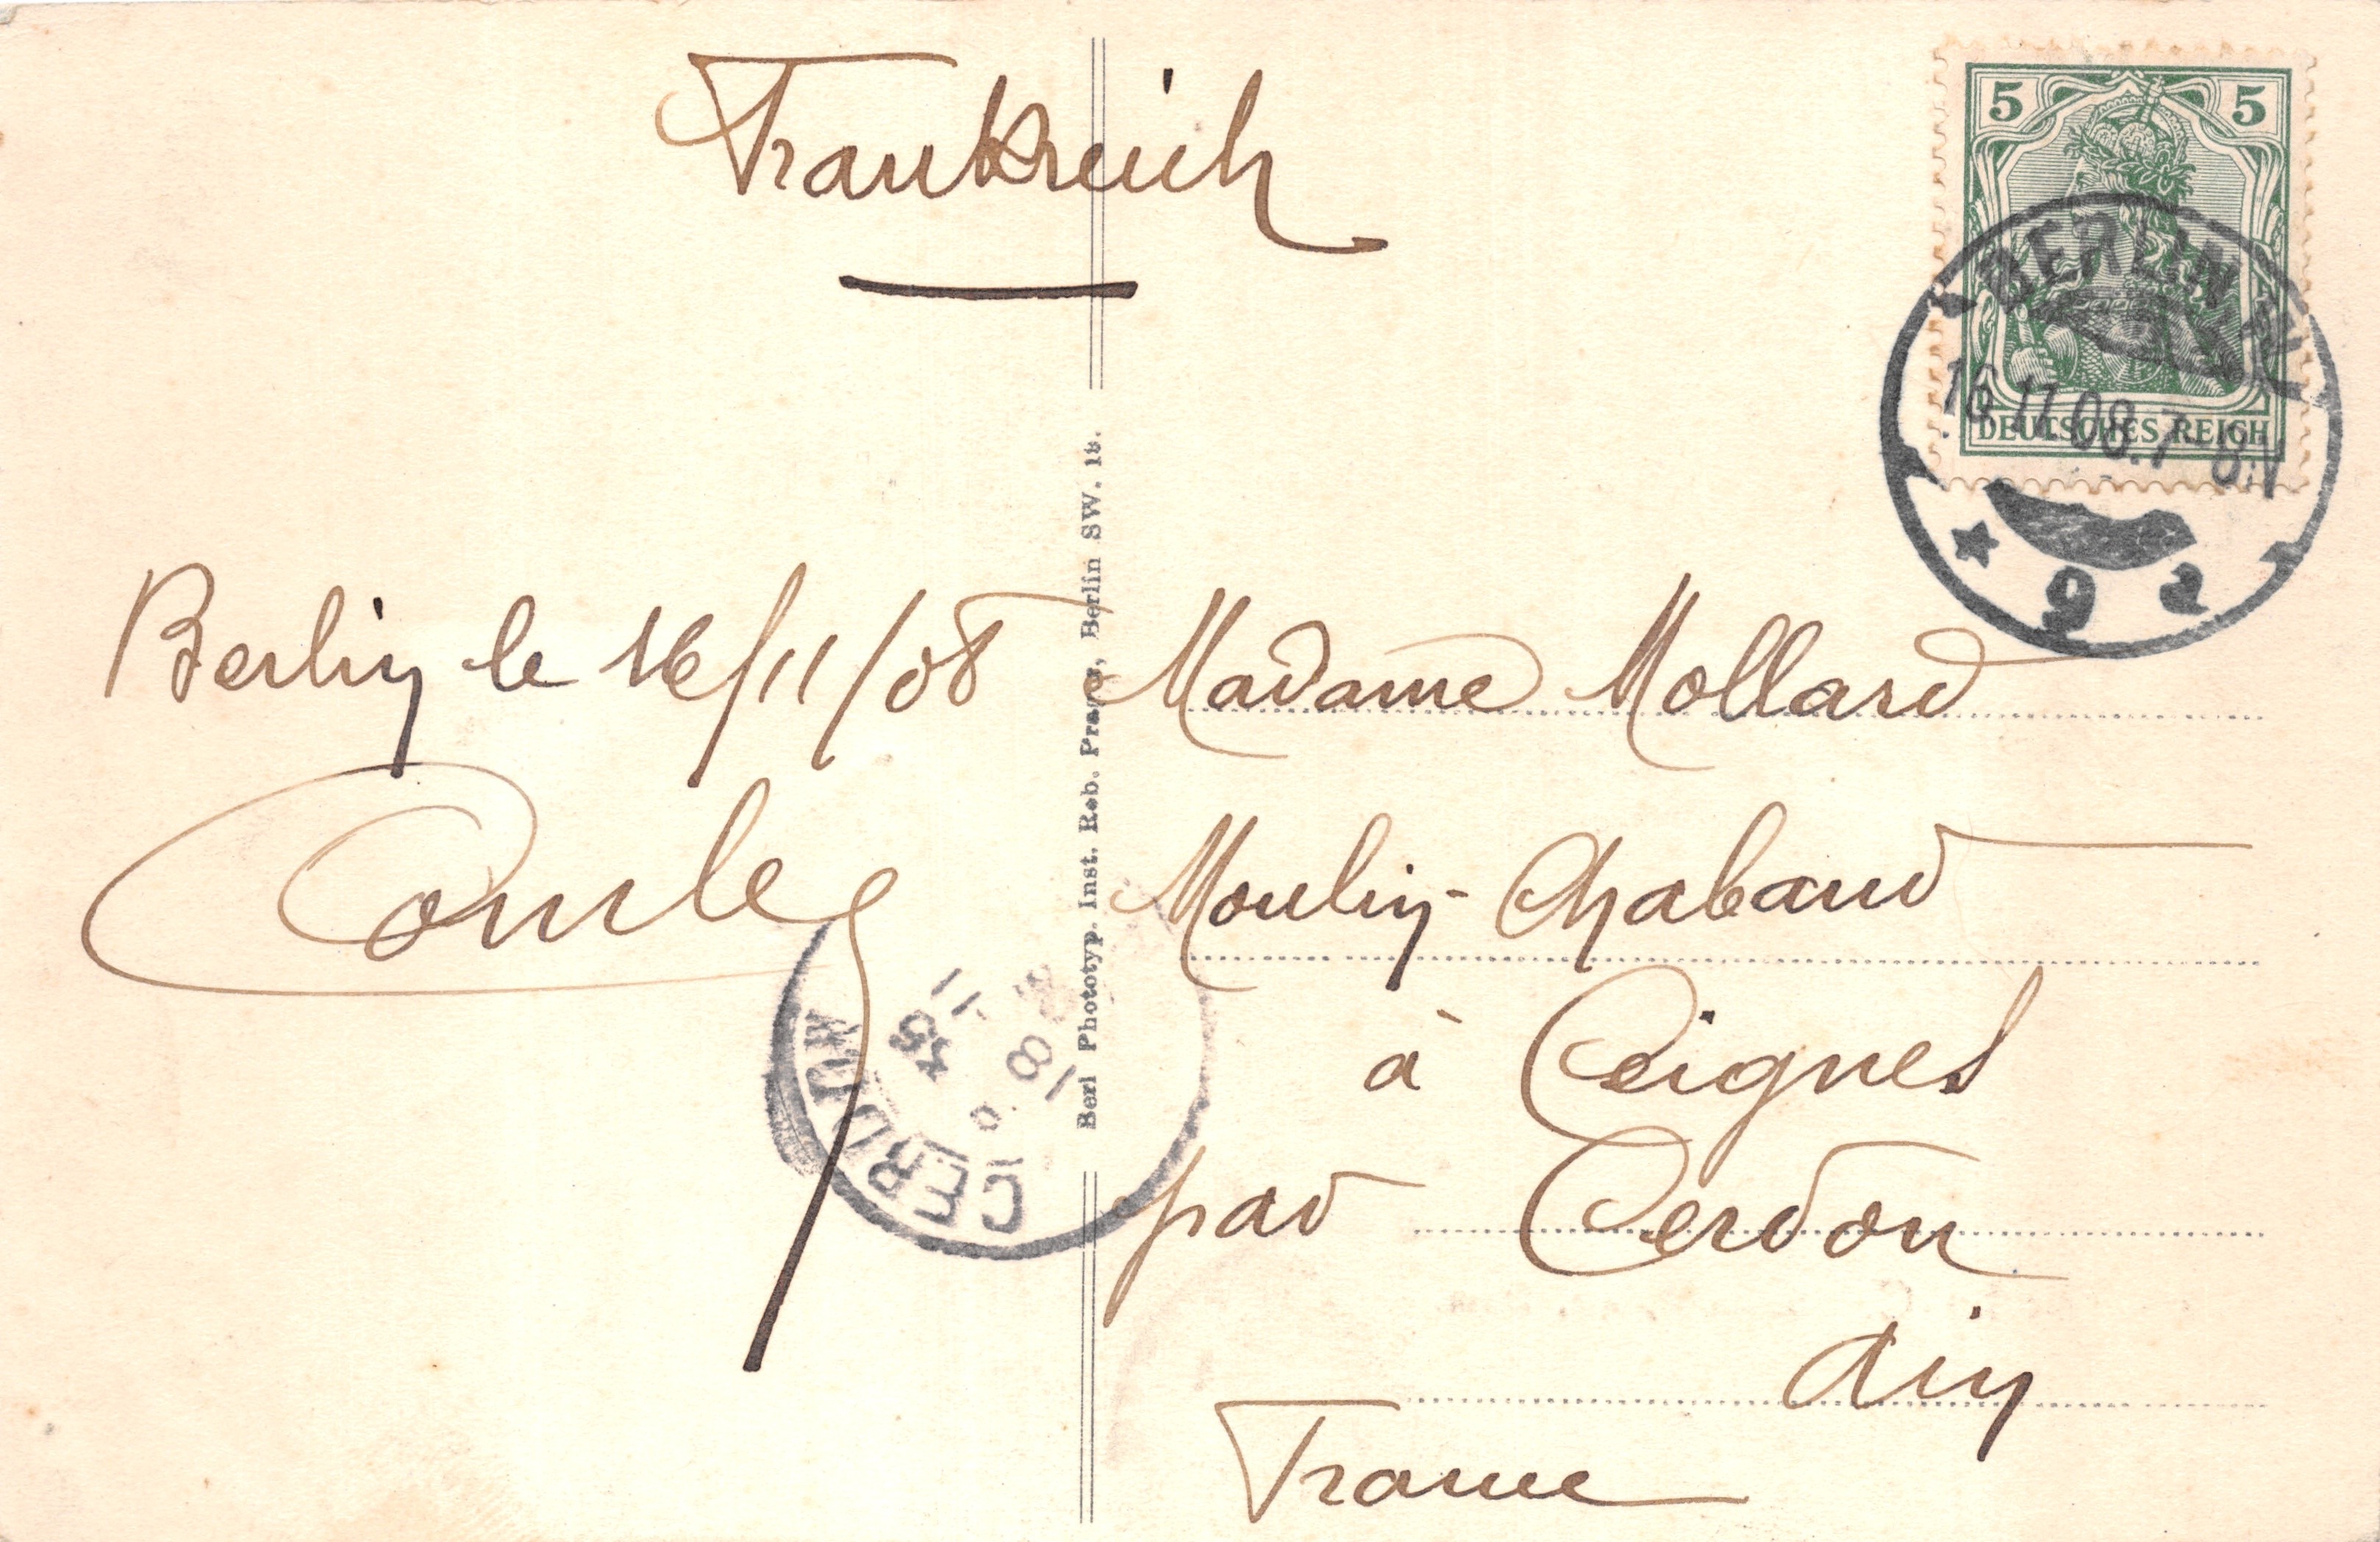 Frankreich
5 5
DEUTSCHES REICH
BERLIN
16.11.08.7-8N
* 9 a
Berlin le 16/11/08
Madame Mollard
Moulin-Chabaud
à Ceignes
par Cerdon
Ain
France
CERDON
18
11
08
Berl Phototyp. Inst. Rob. Prager, Berlin SW. 18.